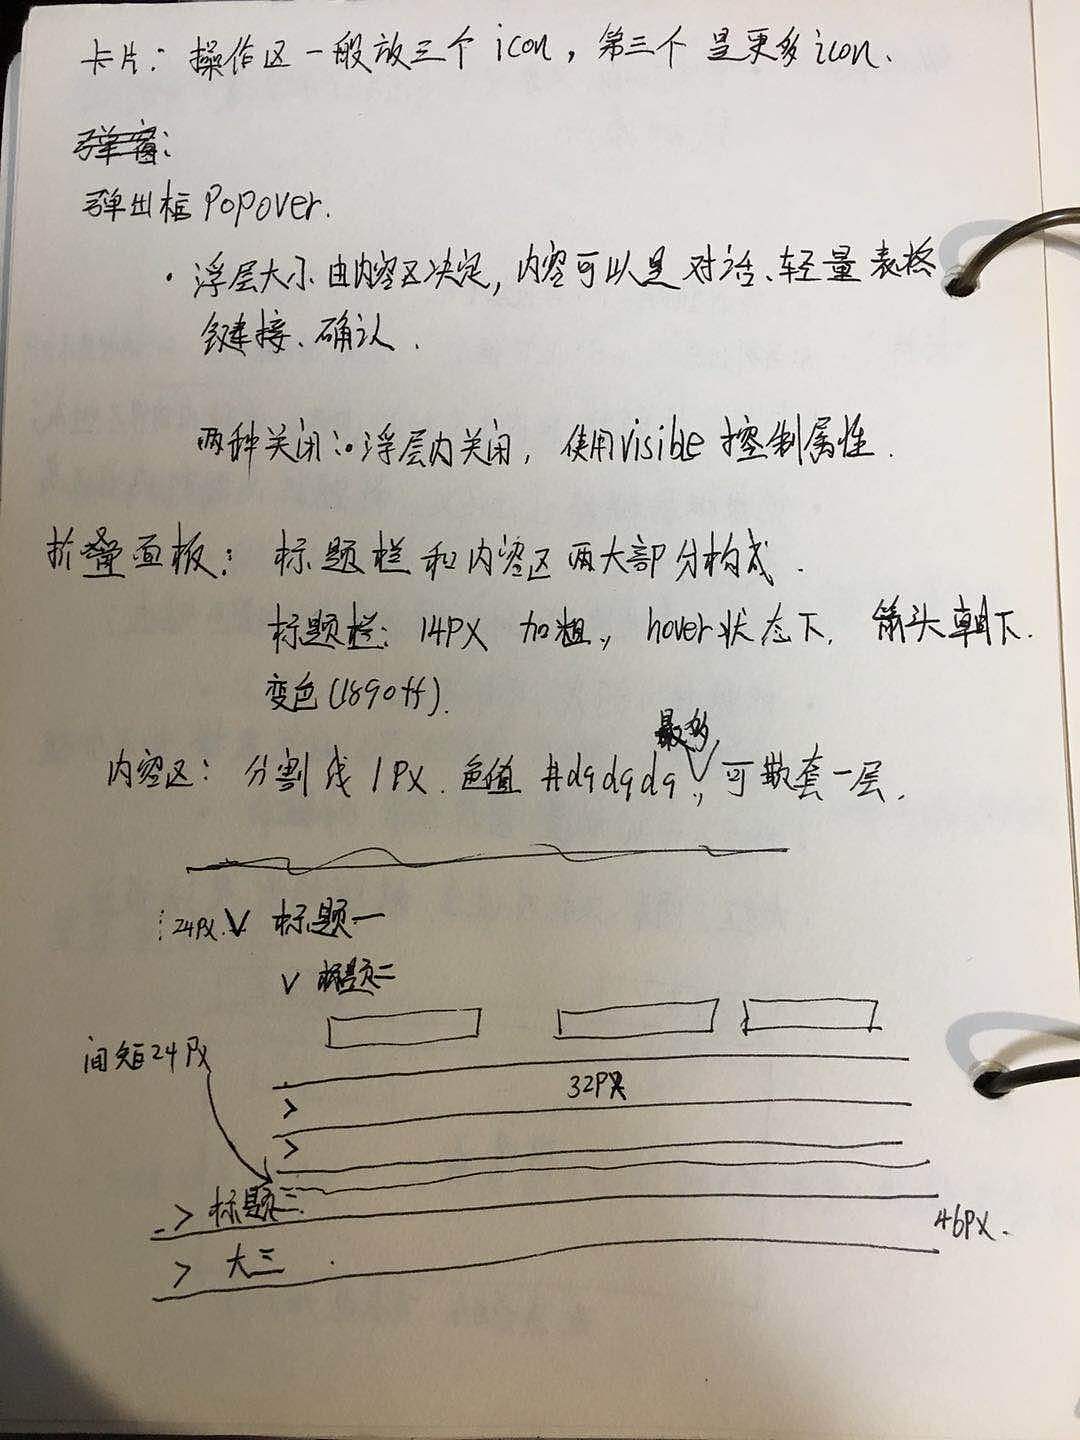 卡片：操作区一般放三个icon，第三个是更多icon.
弹窗：
弹出框Popover.
· 浮层大小由内容区决定，内容可以是对话、轻量表格
链接、确认.
两种关闭：浮层内关闭，使用visible控制属性.
折叠面板：标题栏和内容区两大部分构成.
标题栏：14PX 加粗，hover状态下，箭头朝下.
变色(1890ff).
最多
内容区：分割线1PX.色值#d9d9d9，可嵌套一层.
24PX. V 标题一
V 标题二
间距24PX
32PX
>
>
> 标题二
46PX.
> 大三